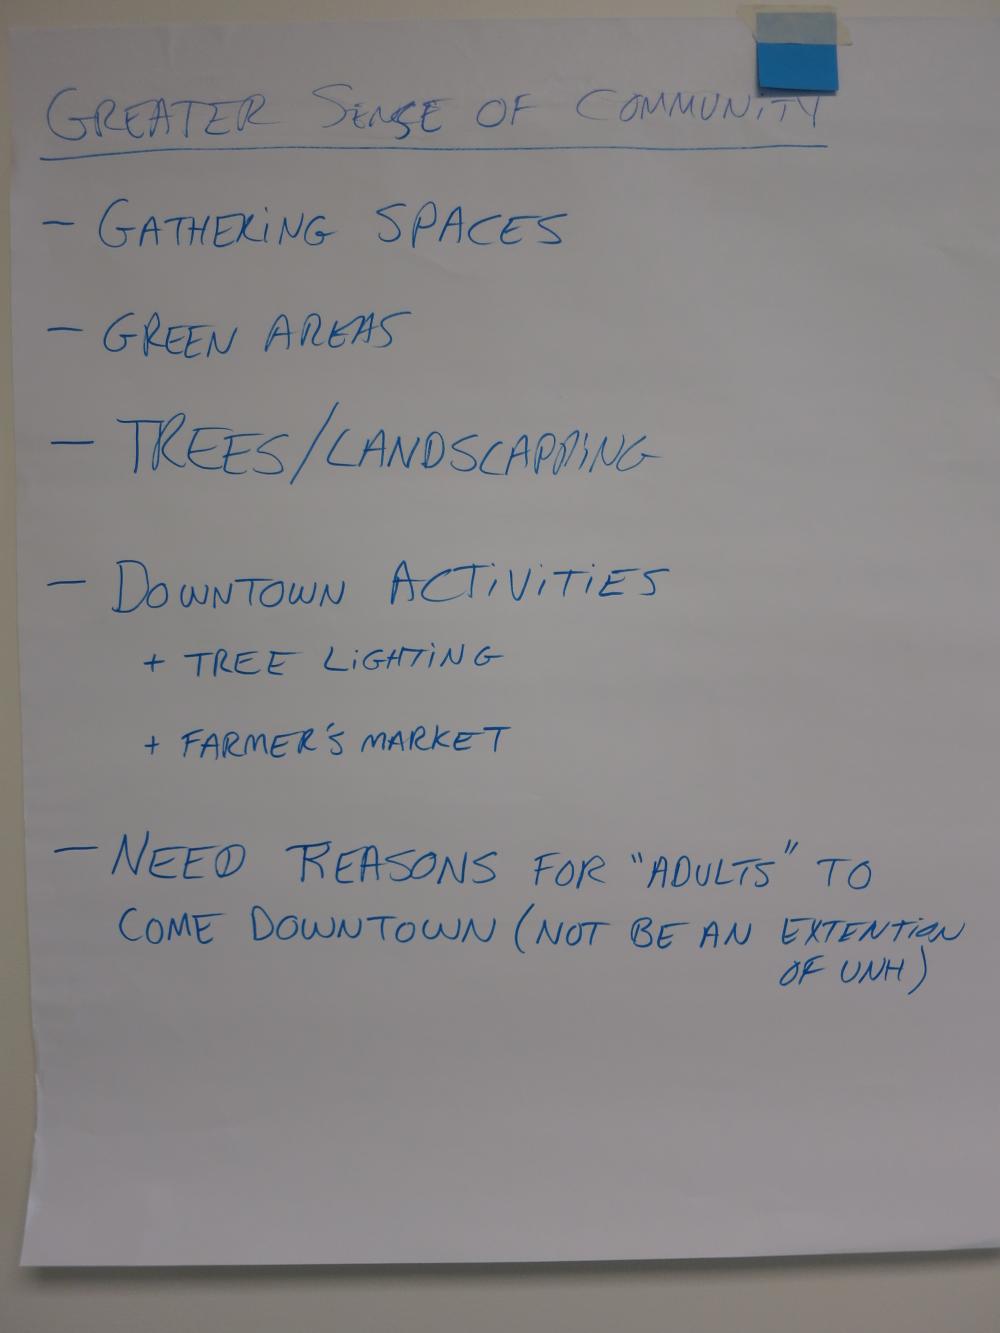 GREATER SENSE OF COMMUNITY
- GATHERING SPACES
- GREEN AREAS
- TREES/LANDSCAPPING
- DOWNTOWN ACTIVITIES
+ TREE LIGHTING
+ FARMER'S MARKET
- NEED REASONS FOR "ADULTS" TO
COME DOWNTOWN (NOT BE AN EXTENTION
OF UNH)